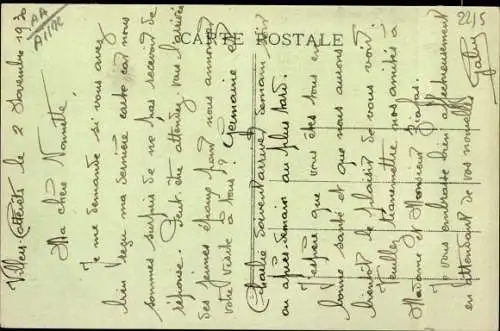 CARTE POSTALE
Villers-Cotterêts le 2 Novembre 1930
Ma chère Nonnette,
Je me demande si vous avez
bien reçu ma dernière carte car nous
sommes surpris de ne pas recevoir de
réponse. Peut être attendez vous l'arrivée
des jeunes époux pour nous annoncer
votre visite à tous? Germaine et
Charlie doivent arriver demain soir
ou après-demain au plus tard.
J'espère que vous êtes tous en
bonne santé et que nous aurons
bientôt le plaisir de vous voir.
Veuillez transmettre nos amitiés à
Madame et Monsieur
Je vous embrasse bien affectueusement
en attendant de vos nouvelles
22/5